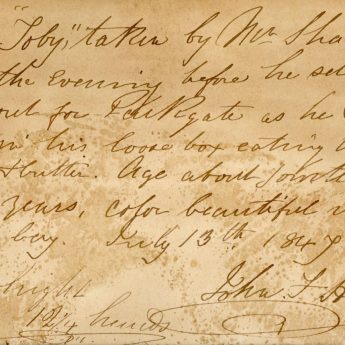 "Toby," taken by Mr Sha
the Evening before he se
out for Parkgate as he
in his loose box eating
Age about
years, color beautiful
bay. July 13th 184
bright
hands
John F. H